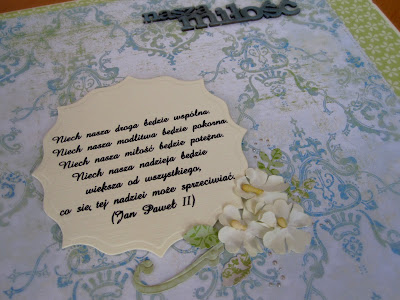 nasza
miłość
Niech nasza droga będzie wspólna.
Niech nasza modlitwa będzie pokorna.
Niech nasza miłość będzie potężna.
Niech nasza nadzieja będzie
większa od wszystkiego,
co się tej nadziei może sprzeciwiać.
(Jan Paweł II)